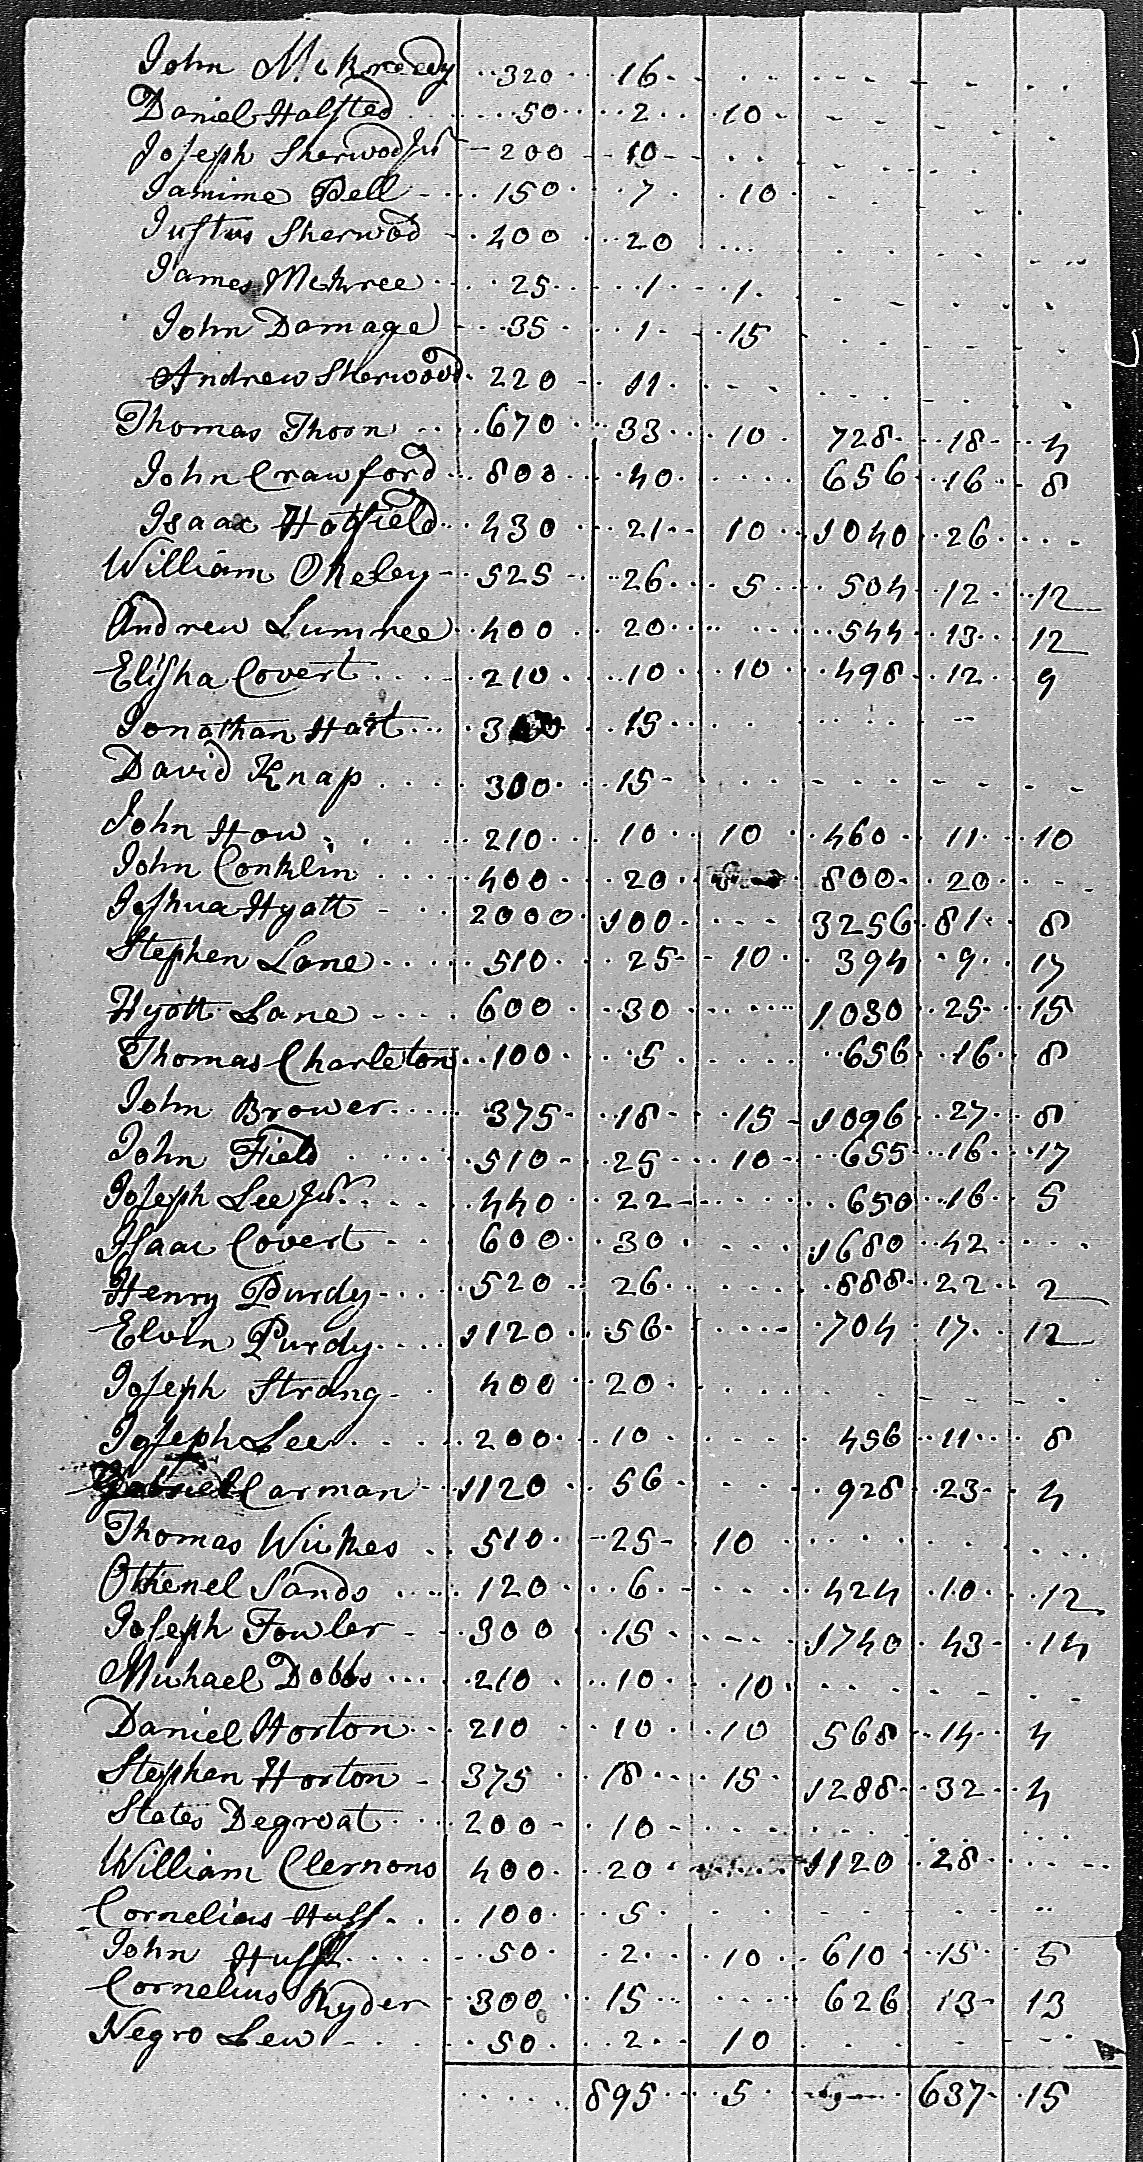 John McKreedy 320 16
Daniel Halsted 50 2 10
Joseph Sherwood Jur 200 10
Jamime Pell 150 7 10
Justus Sherwood 400 20
James McKree 25 1 1
John Damage 35 1 15
Andrew Sherwood 220 11
Thomas Thorn 670 33 10 728 18 4
John Crawford 800 40 656 16 8
Isaac Hatfield 430 21 10 1040 26
William Okeley 525 26 5 504 12 12
Andrew Lumree 400 20 544 13 12
Elisha Covert 210 10 10 498 12 9
Jonathan Hart 300 15
David Knap 300 15
John How 210 10 10 460 11 10
John Conklin 400 20 800 20
Joshua Hyatt 2000 100 3256 81 8
Stephen Lane 510 25 10 394 9 17
Hyatt Lane 600 30 1030 25 15
Thomas Charleton 100 5 656 16 8
John Brower 375 18 15 1096 27 8
John Field 510 25 10 655 16 17
Joseph Lee Jur 440 22 650 16 5
Isaac Covert 600 30 1680 42
Henry Purdy 520 26 888 22 2
Elvin Purdy 1120 56 704 17 12
Joseph Strang 400 20
Joseph Lee 200 10 456 11 8
Gabriel Carman 1120 56 928 23 4
Thomas Wickes 510 25 10
Othenel Sands 120 6 424 10 12
Joseph Fowler 300 15 1740 43 14
Michael Dobbs 210 10 10
Daniel Horton 210 10 10 568 14 4
Stephen Horton 375 18 15 1288 32 4
States Degroat 200 10
William Clemons 400 20 1120 28
Cornelius Huff 100 5
John Huff 50 2 10 610 15 5
Cornelius Ryder 300 15 626 13 13
Negro Lew 50 2 10
895 5 637 15